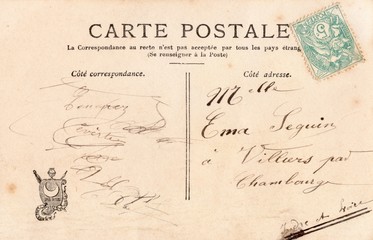 CARTE POSTALE
La Correspondance au recto n'est pas acceptée par tous les pays étrang
(Se renseigner à la Poste)
Côté correspondance.
Côté adresse.
Melle
Ema Seguin
à Villiers par
Chambourg
Indre et Loire
5